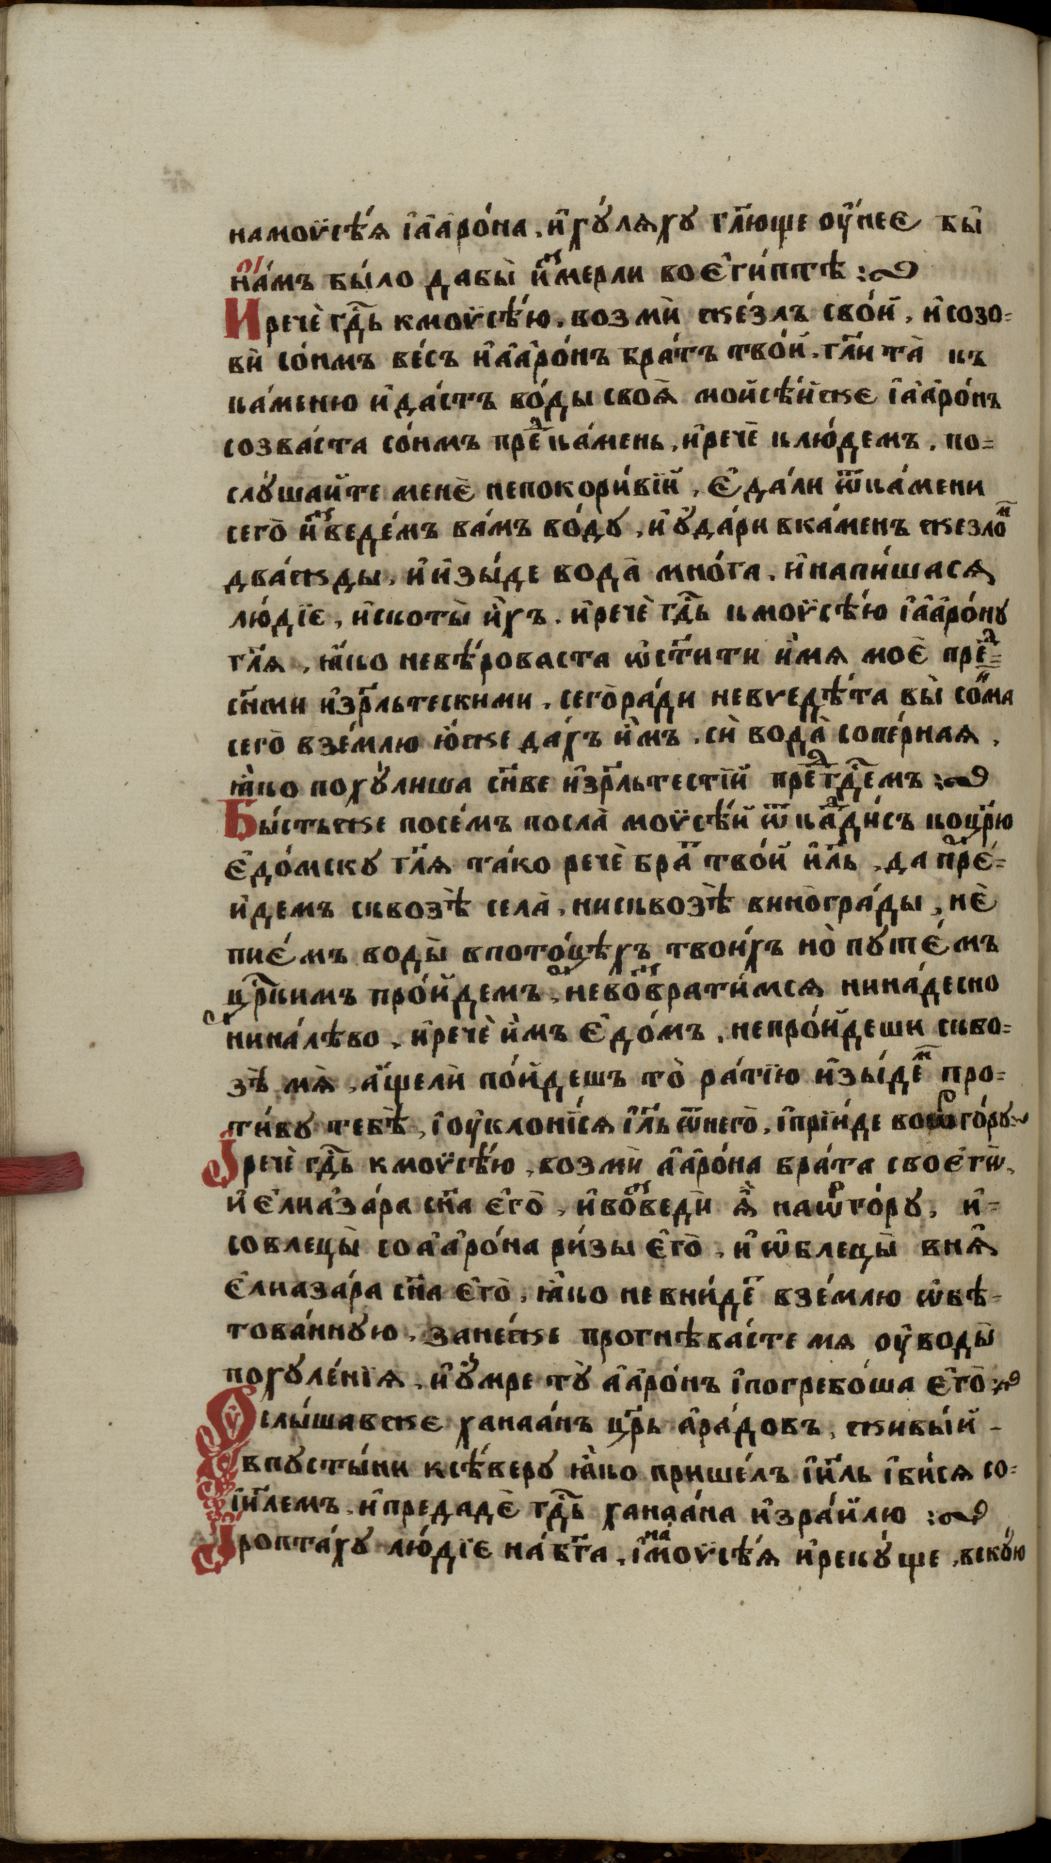 намоѵсѣ́я і҆а҆а҆ро́на, и҆хꙋ́ляхꙋ гл҃юще ᲂу҆́нее бы̀
на́мъ бы́ло дабы̀ и҆зⷨмерли во є҆ги́птѣ :~
И речѐ гдⷭ҇ь кмоѵсѣ́ю, возмѝ жезлъ сво́й, и҆созо-
вѝ со́нмъ ве́съ и҆а҆а҆ро́нъ братъ тво́й, гл҃и та̀ къ
ка́меню и҆да́стъ во́ды своѧ̀ мойсѣ́йже і҆а҆а҆ро́нъ
созва́ста со́нмъ преⷣка́мень, и҆речѐ клю́демъ, по-
слꙋ́шайте менѐ непокори́вїй, є҆да́ли ѿка́мени
сего̀ и҆зⷥведе́мъ ва́мъ во́дꙋ, и҆ ᲂу҆да́ри вка́менъ жезлоⷨ
два́жды, и҆ и҆зы́де вода̀ мно́га, и҆напи́шася
лю́дїє, и҆скоты̀ и҆́хъ. и҆речѐ гдⷭ҇ь кмоѵсѣ́ю і҆а҆а҆ро́нꙋ
гл҃я, ꙗ҆́ко невѣ́роваста ѡ҆ст҃и́ти и҆́мя моѐ преⷣ-
сн҃ми и҆зрл҃ьтескими, сего̀ра́ди невведѣ́та вы̀ со́нⷨма
сего̀ взе́млю ю҆́же да́хъ и҆̀мъ, сѝ вода̀ сопе́рная,
ꙗ҆́ко похꙋ́лиша сн҃ве и҆зрл҃ьтестїй преⷣгдⷭ҇емъ :~
Бы́стьже посе́мъ посла̀ моѵсѣ́й ѿка́дⷣисъ коцр҃ю
є҆до́мскꙋ гл҃я та́ко речѐ браⷮ тво́й і҆и҃ль, да пре́-
и҆демъ сквозѣ̀ села̀, нисквозѣ̀ виногра́ды, нѐ
пие́мъ воды̀ впото́цѣхъ твои́хъ но̀ пꙋте́мъ
црⷭ҇кимъ про́йдемъ, невоⷥврати́мся нина́десно
нина́лѣво, и҆речѐ и҆̀мъ є҆до́мъ, непро́йдеши скво-
зѣ̀ мя̀, а҆́щели̇ по́йдешъ то̀ ра́тїю и҆зы́деⷨ про-
ти́вꙋ тебѣ̀, і҆ᲂу҆клони́ся і҆и҃ль ѿнего̀, і҆прїи́де воѡⷬго́рꙋ~
І речѐ гдⷭ҇ь кмоѵсѣ́ю, возмѝ а҆а҆ро́на бра́та своє҆гѡ̀,
и҆ є҆лиаза́ра сн҃а є҆го̀, и҆воⷥведѝ ѧ҆̀ наѡⷬго́рꙋ, и҆-
совлецы̀ соа҆а҆ро́на ри́зы є҆го̀, и҆ ѡ҆блецы̀ внѧ̀
є҆лиаза́ра сн҃а є҆го̀, ꙗ҆́ко невни́деⷮ взе́млю ѡ҆бѣ-
това́ннꙋю, зане́же прогнѣва́сте мя ᲂу҆воды̀
похꙋле́нїя, и҆ ᲂу҆́мре тꙋ̀ а҆а҆ро́нъ і҆погребо́ша є҆го̀ :~
Ѹслы́шавже ханаа́нъ цр҃ь а҆ра́довъ, живы́й -
впꙋсты́ни ксѣ́верꙋ ꙗ҆́ко прише́лъ і҆и҃ль і҆би́ся со-
і҆и҃лемъ, и҆предадѐ гдⷭ҇ь ханаа́на и҆зра́илю :~
І роптахꙋ лю́дїє на́бг҃а, і҆наⷨмоѵсѣ́я и҆рекꙋ́ще, векꙋ́ю